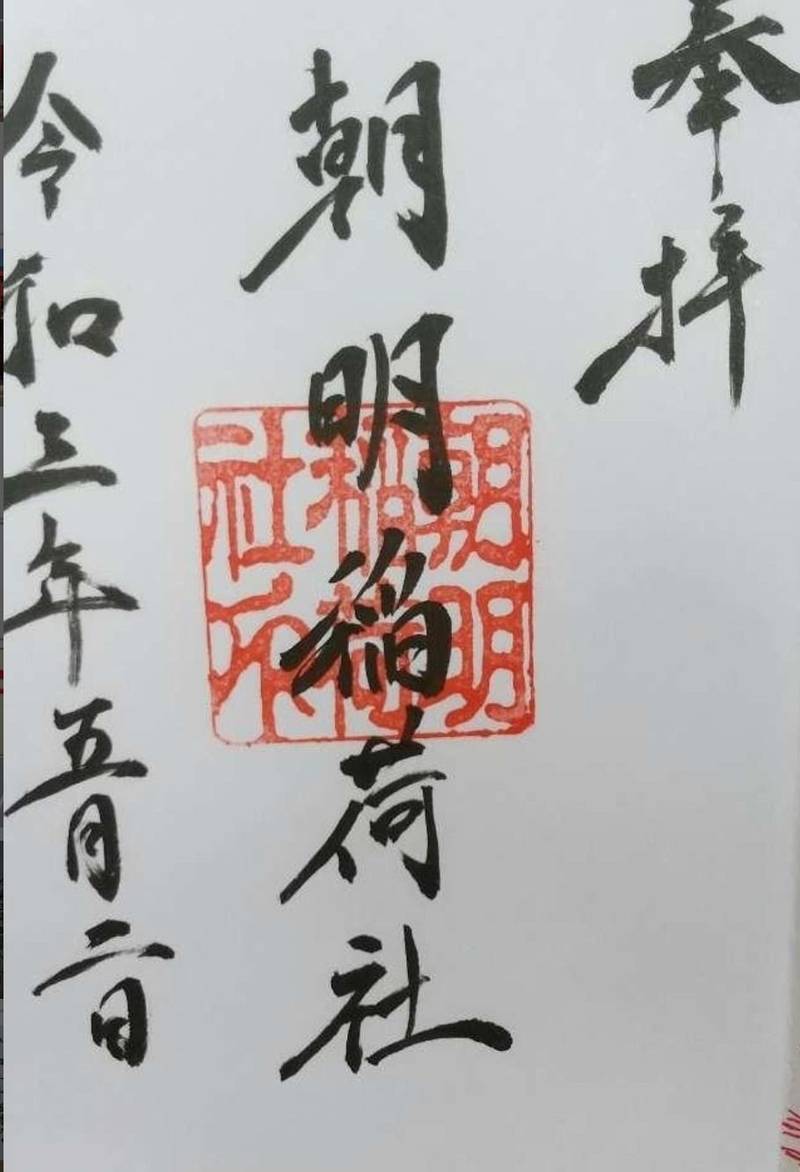 奉拝
朝明稲荷社
朝明稲荷社印
令和三年五月二日